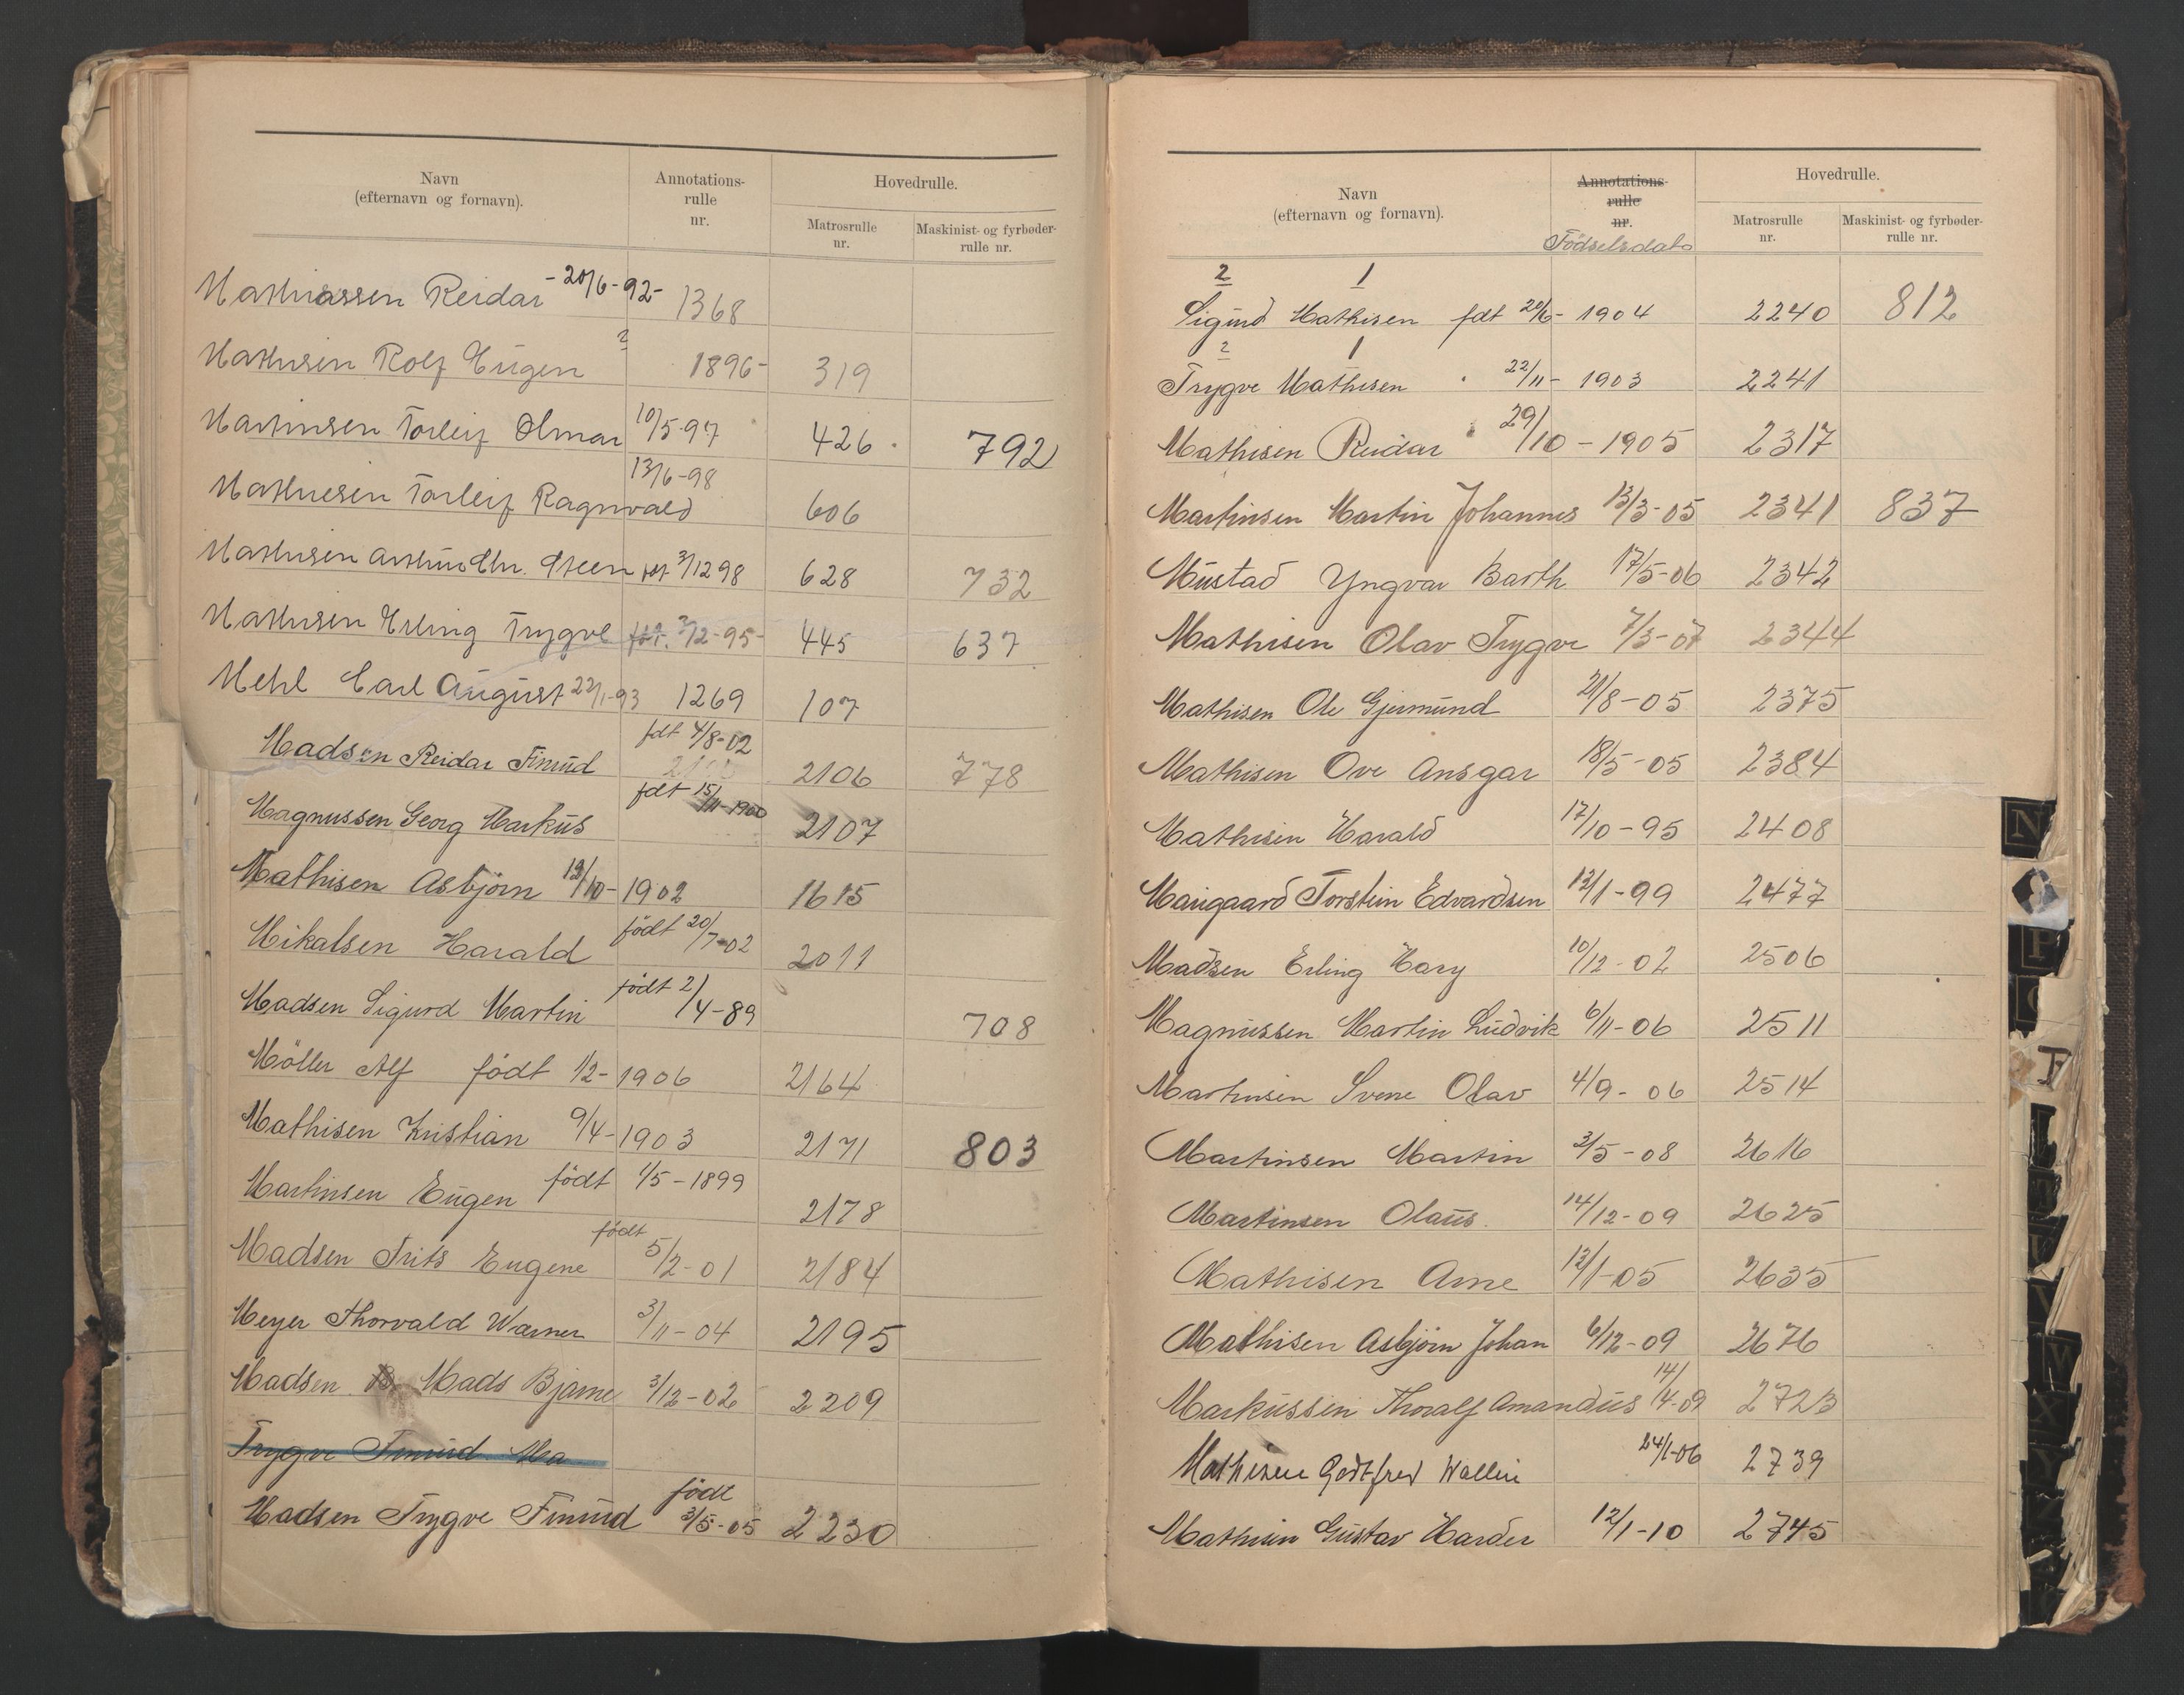 Navn
(efternavn og fornavn).
Annotations-
rulle
nr.
Hovedrulle.
Matrosrulle
nr.
Maskinist- og fyrbøder-
rulle nr.
Mathiassen Reidar - 20/6-92- 1368
Mathisen Rolf Eugen 2 1896- 319
Martinsen Torleif Olmar 10/5-97 426 792
Mathiesen Torleif Ragnvald 13/6-98 606
Mathisen Arthur Chr. Steen fdt 3/12 98 628 732
Mathisen Erling Trygve fdt. 2/12-95- 445 637
Mehl Carl August 22/1-93 1269 107
Madsen Reidar Finnid fdt 4/8-02 2106 778
Magnussen Georg Markus fdt 15/11-1900 2107
Mathisen Asbjörn 13/10-1902 1615
Mikalsen Harald födt 20/7-02 2011
Madsen Sigurd Martin födt 2/4-89 708
Möller Alf födt 1/2-1906 2164
Mathisen Kristian 9/4-1903 2171 803
Martinsen Eugen födt 1/5-1899 2178
Madsen Frits Eugene födt 5/2-01 2184
Meyer Thorvald Warner 3/11-04 2195
Madsen B Mads Bjarne 3/12-02 2209
Trygve Finnid Ma
Madsen Trygve Finnid födt 3/5-05 2230
Navn
(efternavn og fornavn).
Annotations-
rulle
nr.
Födselsdato
Hovedrulle.
Matrosrulle
nr.
Maskinist- og fyrbøder-
rulle nr.
2 1
Sigurd Mathisen fdt 20/6- 1904 2240 812
2 1
Trygve Mathisen 22/11- 1903 2241
Mathisen Reidar 29/10-1905 2317
Martinsen Martin Johannes 13/3-05 2341 837
Mustad Yngvar Barth 17/5-06 2342
Mathisen Olav Trygve 7/3-07 2344
Mathisen Ole Gjermund 21/8-05 2375
Mathisen Ove Ansgar 18/5-05 2384
Mathisen Harald 17/10-95 2408
Maugaard Torstein Edvardsen 12/1-99 2477
Madsen Erling Hary 10/12-02 2506
Magnussen Martin Ludvik 6/11-06 2511
Martinsen Sverre Olav 4/9-06 2514
Martinsen Martin 3/5-08 2616
Martinsen Olaus. 14/12-09 2625
Mathisen Arne 12/1-05 2635
Mathisen Asbjörn Johan 6/12-09 2676
Markussen Thoralf Amandus 14/4-09 2723
Mathisen Godtfred Wallin 24/1-06 2739
Mathisen Gustav Harder 12/1-10 2745
N
P
F
L
U
V
W
X
Y